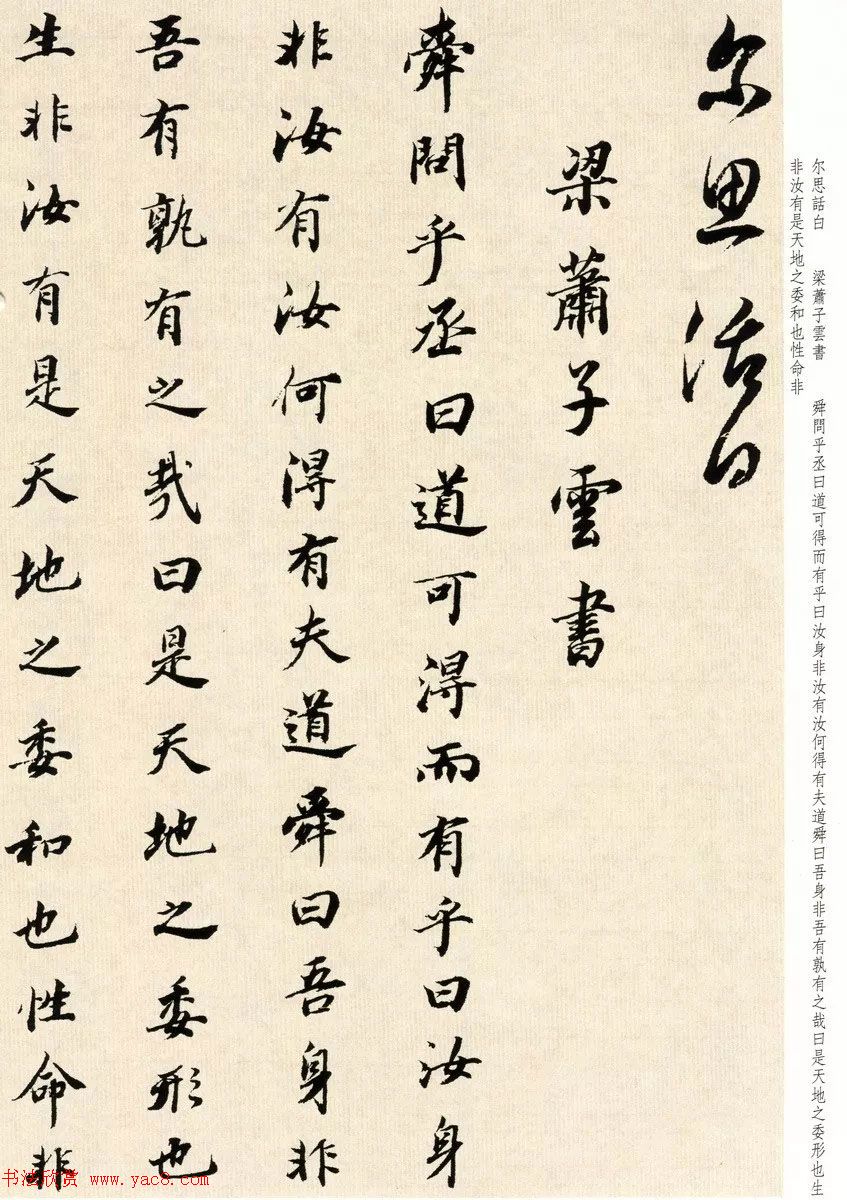 尔思話白　梁蕭子雲書　舜問乎丞曰道可得而有乎曰汝身非汝有汝何得有夫道舜曰吾身非吾有孰有之哉曰是天地之委形也生
非汝有是天地之委和也性命非
尔思话白
梁蕭子雲書
舜問乎丞曰道可得而有乎曰汝身
非汝有汝何得有夫道舜曰吾身非
吾有孰有之哉曰是天地之委形也
生非汝有是天地之委和也性命非
书法欣赏 www.yac8.com